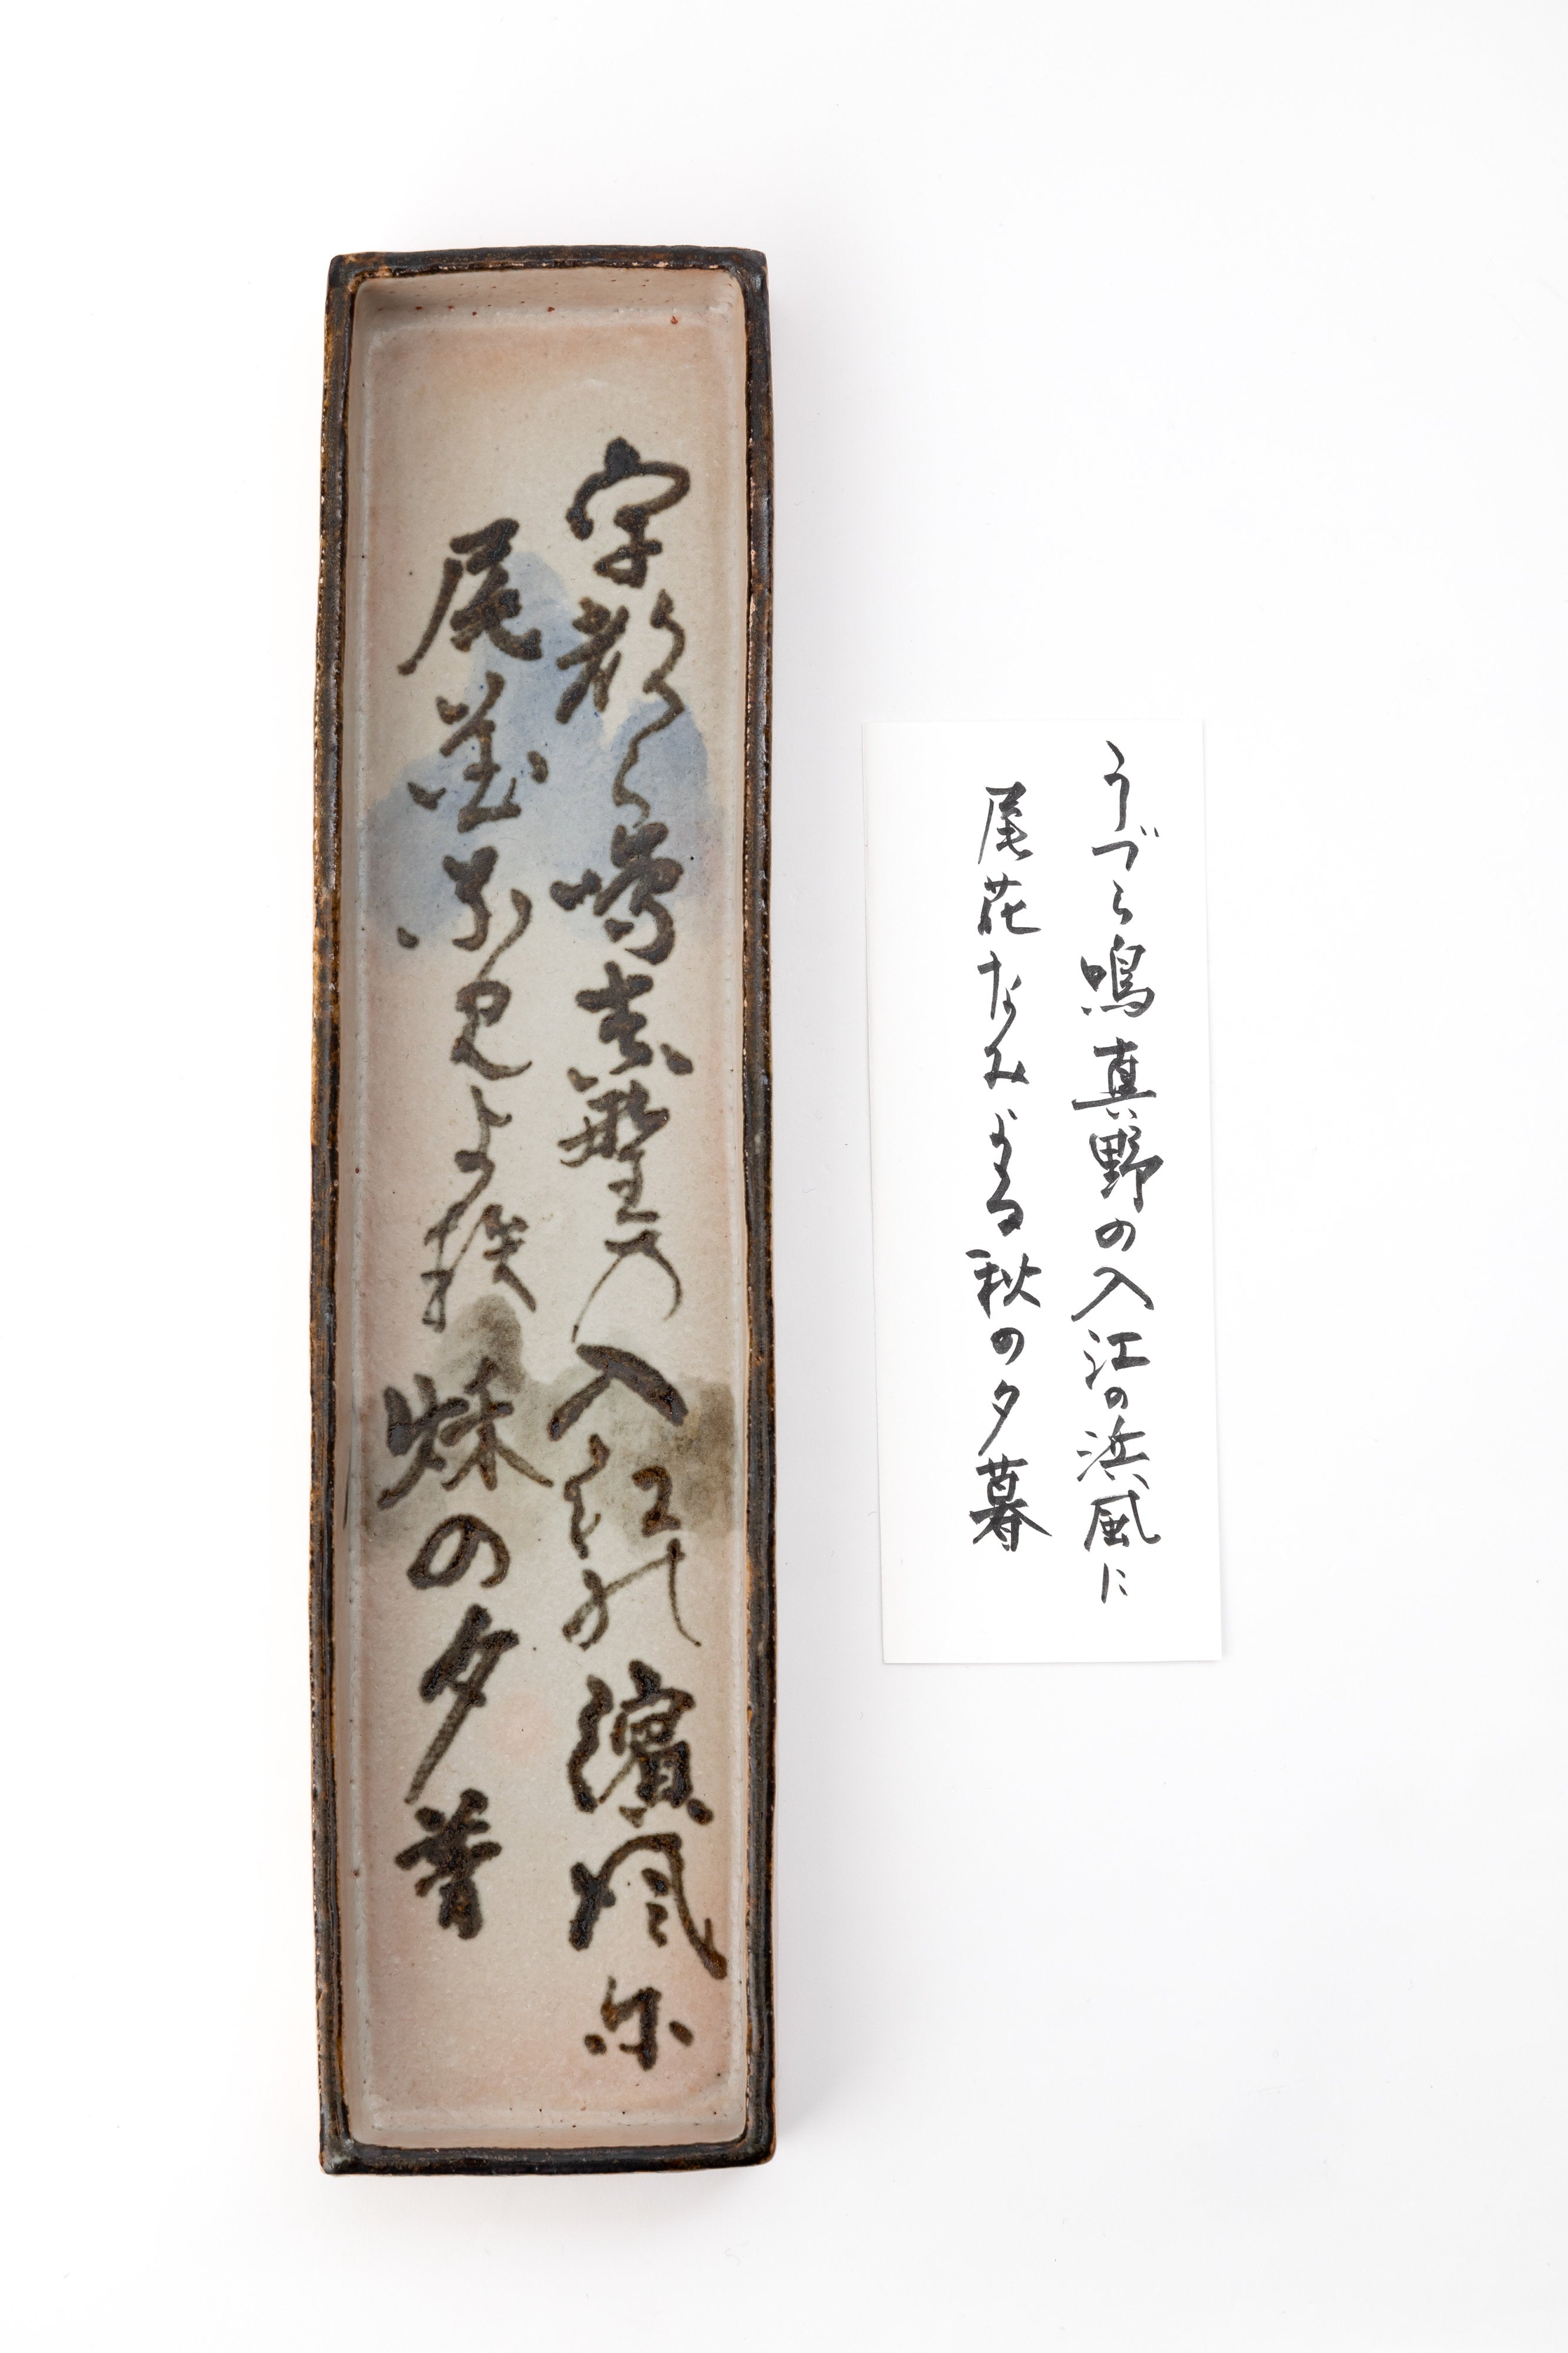 宇都ら鳴真野乃入江能濱風尓
尾花那見よ類穐の夕暮
うづら鳴真野の入江の浜風に
尾花なみよる秋の夕暮